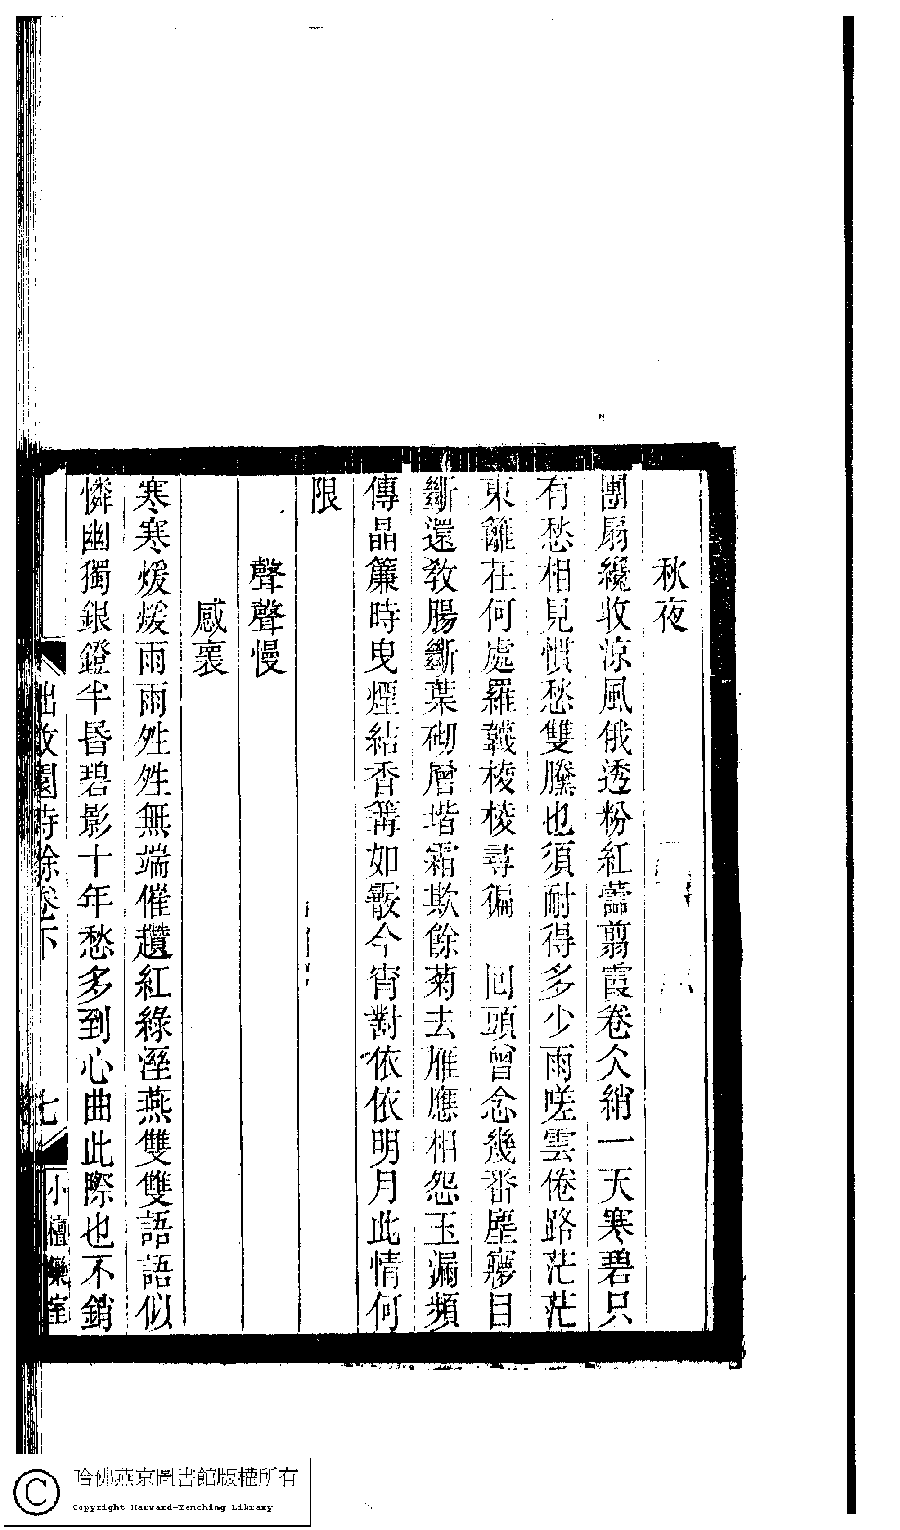 秋夜
團扇纔收涼風俄透粉紅薔翦霞卷仌綃一天寒碧只
有愁相見慣愁雙騰也須耐得多少雨嗟雲倦路茫茫
東籬在何處羅韤棱棱尋徧　回頭曾念幾番塵夢目
斷還教腸斷葉砌層堦霜欺餘菊去雁應相怨玉漏頻
傳晶簾時曳煙結香篝如霰今宵對依依明月此情何
限
聲聲慢
感褱
寒寒煖煖雨雨夝夝無端催趲紅綠溼燕雙雙語語似
憐幽獨銀鐙半昏碧影十年愁多到心曲此際也不銷
拙政園詩餘卷下
七
小檀欒室
哈佛燕京圖書館版權所有
Copyright Harvard-Yenching Library